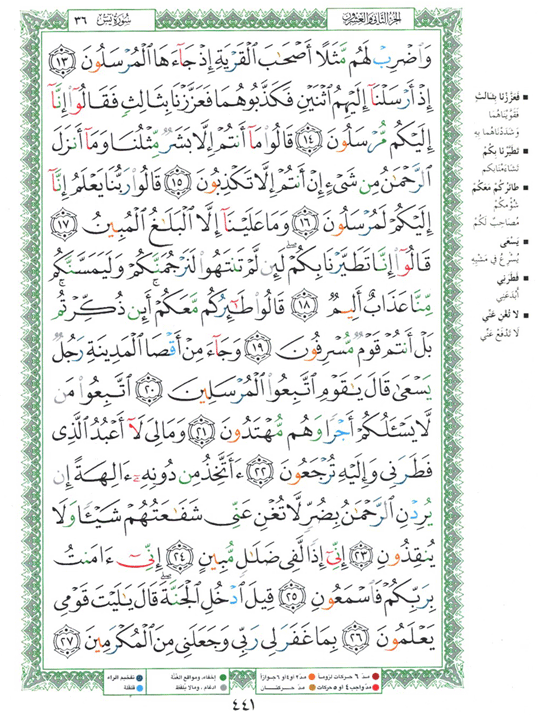 الجزء الثاني والعشرون
سورة يس ٣٦
وَاضْرِبْ لَهُم مَّثَلًا أَصْحَٰبَ الْقَرْيَةِ إِذْ جَآءَهَا الْمُرْسَلُونَ ﴿١٣﴾
إِذْ أَرْسَلْنَآ إِلَيْهِمُ اثْنَيْنِ فَكَذَّبُوهُمَا فَعَزَّزْنَا بِثَالِثٍ فَقَالُوٓا۟ إِنَّآ
إِلَيْكُم مُّرْسَلُونَ ﴿١٤﴾ قَالُوا۟ مَآ أَنتُمْ إِلَّا بَشَرٌ مِّثْلُنَا وَمَآ أَنزَلَ
الرَّحْمَٰنُ مِن شَىْءٍ إِنْ أَنتُمْ إِلَّا تَكْذِبُونَ ﴿١٥﴾ قَالُوا۟ رَبُّنَا يَعْلَمُ إِنَّآ
إِلَيْكُمْ لَمُرْسَلُونَ ﴿١٦﴾ وَمَا عَلَيْنَآ إِلَّا الْبَلَٰغُ الْمُبِينُ ﴿١٧﴾
قَالُوٓا۟ إِنَّا تَطَيَّرْنَا بِكُمْ ۖ لَئِن لَّمْ تَنتَهُوا۟ لَنَرْجُمَنَّكُمْ وَلَيَمَسَّنَّكُم
مِّنَّا عَذَابٌ أَلِيمٌ ﴿١٨﴾ قَالُوا۟ طَٰٓئِرُكُم مَّعَكُمْ ۚ أَئِن ذُكِّرْتُم ۚ
بَلْ أَنتُمْ قَوْمٌ مُّسْرِفُونَ ﴿١٩﴾ وَجَآءَ مِنْ أَقْصَا الْمَدِينَةِ رَجُلٌ
يَسْعَىٰ قَالَ يَٰقَوْمِ اتَّبِعُوا۟ الْمُرْسَلِينَ ﴿٢٠﴾ اتَّبِعُوا۟ مَن
لَّا يَسْـَٔلُكُمْ أَجْرًا وَهُم مُّهْتَدُونَ ﴿٢١﴾ وَمَا لِىَ لَآ أَعْبُدُ الَّذِى
فَطَرَنِى وَإِلَيْهِ تُرْجَعُونَ ﴿٢٢﴾ ءَأَتَّخِذُ مِن دُونِهِۦٓ ءَالِهَةً إِن
يُرِدْنِ الرَّحْمَٰنُ بِضُرٍّ لَّا تُغْنِ عَنِّى شَفَٰعَتُهُمْ شَيْـًٔا وَلَا
يُنقِذُونِ ﴿٢٣﴾ إِنِّىٓ إِذًا لَّفِى ضَلَٰلٍ مُّبِينٍ ﴿٢٤﴾ إِنِّىٓ ءَامَنتُ
بِرَبِّكُمْ فَاسْمَعُونِ ﴿٢٥﴾ قِيلَ ادْخُلِ الْجَنَّةَ ۖ قَالَ يَٰلَيْتَ قَوْمِى
يَعْلَمُونَ ﴿٢٦﴾ بِمَا غَفَرَ لِى رَبِّى وَجَعَلَنِى مِنَ الْمُكْرَمِينَ ﴿٢٧﴾
فَعَزَّزْنَا بِثَالِثٍ
فَقَوَّيْنَاهُمَا
وَشَدَدْنَاهُمَا بِهِ
تَطَيَّرْنَا بِكُمْ
تَشَاءَمْنَا بِكُمْ
طَائِرُكُمْ مَعَكُمْ
شُؤْمُكُمْ
مُصَاحِبٌ لَكُمْ
يَسْعَى
يُسْرِعُ فِي مَشْيِهِ
فَطَرَنِي
أَبْدَعَنِي
لَا تُغْنِ عَنِّي
لَا تَدْفَعُ عَنِّي
مدّ ٦ حركات لزوماً
مدّ ٢ أو ٤ أو ٦ جوازاً
إخفاء، ومواقع الغُنَّة
تفخيم الراء
مدّ واجب ٤ أو ٥ حركات
مدّ حركتان
ادغام، وما لا يُلفظ
قلقلة
٤٤١